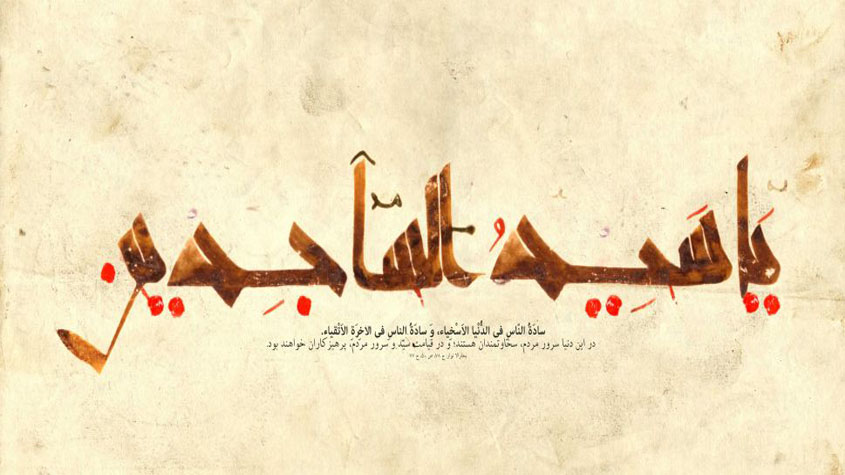 يا سَيِّدُ السّاجِدِين
سادَةُ النّاسِ فى الدُّنْيا الاَسْخِياء، وَ سادَةُ الناسِ فى الاخِرَةِ الاَتْقياء.
در این دنیا سرور مردم، سخاوتمندان هستند؛ و در قیامت سیّد و سرور مردم، پرهیزکاران خواهند بود.